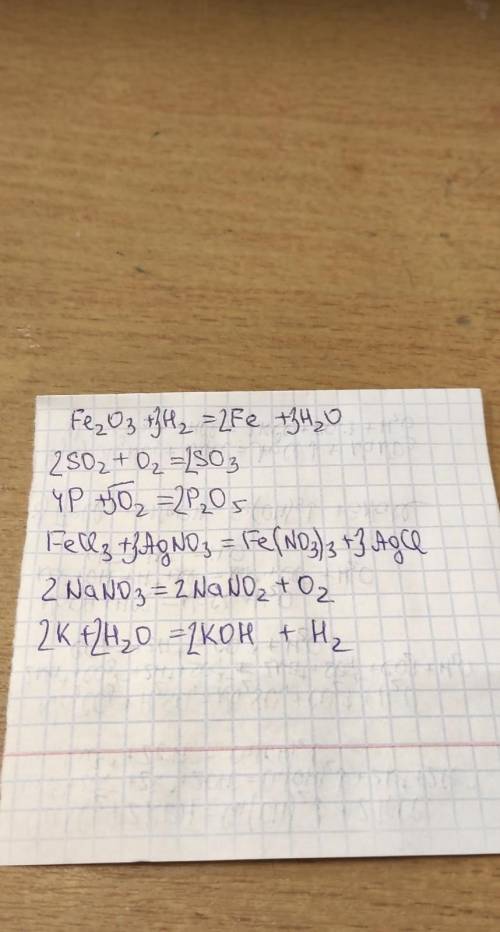 Fe₂O₃ + 3H₂ = 2Fe + 3H₂O
2SO₂ + O₂ = 2SO₃
4P + 5O₂ = 2P₂O₅
FeCl₃ + 3AgNO₃ = Fe(NO₃)₃ + 3AgCl
2NaNO₃ = 2NaNO₂ + O₂
2K + 2H₂O = 2KOH + H₂